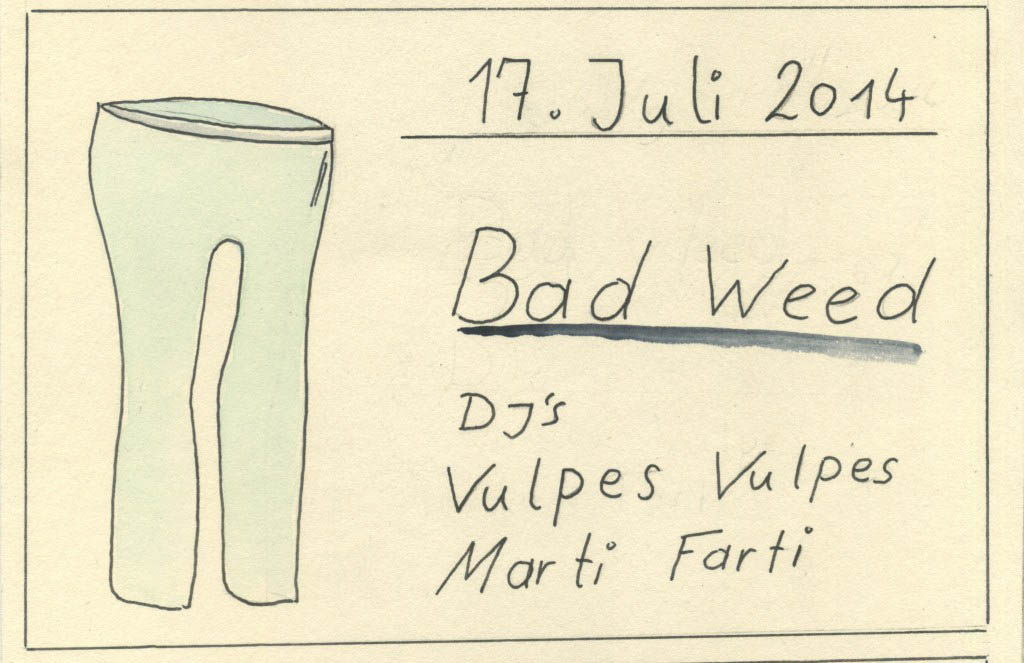 17. Juli 2014
Bad Weed
DJ's
Vulpes Vulpes
Marti Farti